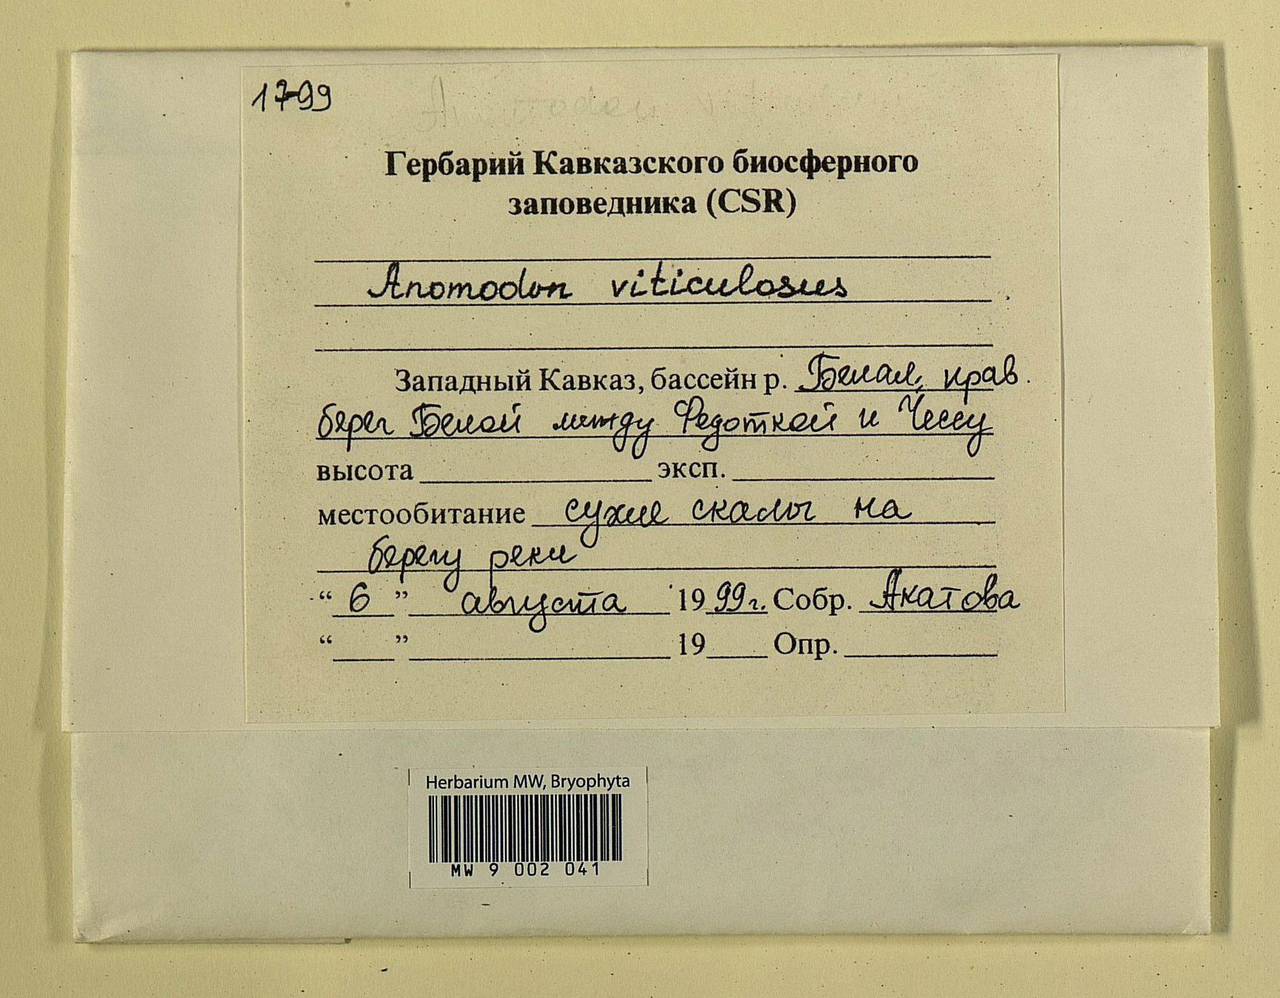 17-99
Anomodon viticulosus
Гербарий Кавказского биосферного
заповедника (CSR)
Anomodon viticulosus
Западный Кавказ, бассейн р. Белая, прав.
берег Белой между Федоткой и Чессу
высота эксп.
местообитание сухие скалы на
берегу реки
“ 6 ” августа 1999г. Собр. Акатова
“ ” 19 Опр.
Herbarium MW, Bryophyta
MW 9 002 041